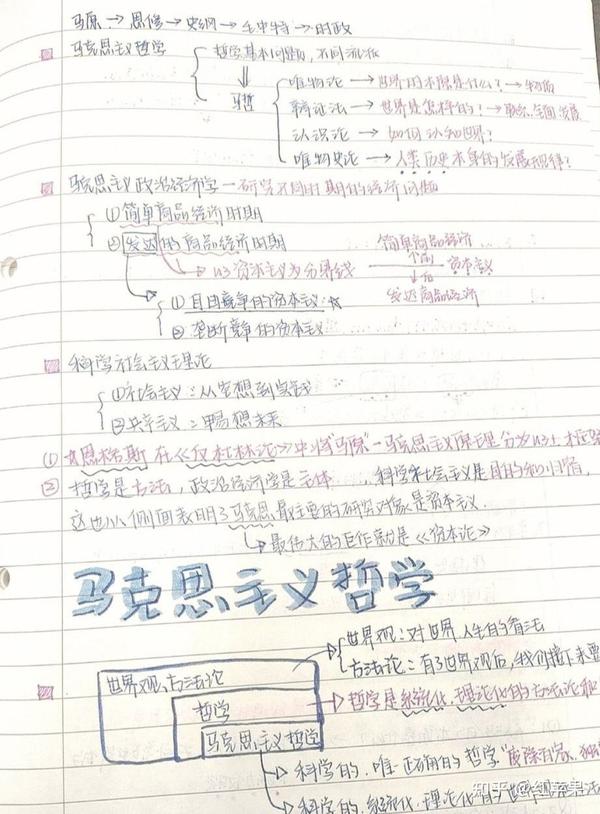 马原 → 思修 → 史纲 → 毛中特 → 时政
马克思主义哲学
哲学基本问题，不同流派
⇓
马哲
唯物论 → 世界的本质是什么？→ 物质
辩证法 → 世界是怎样的？→ 联系、全面、发展
认识论 → 如何认知世界？
唯物史论 → 人类历史本身的发展规律？
马克思主义政治经济学 - 研究不同时期的经济问题
① 简单商品经济时期
② 发达的商品经济时期
→ 以资本主义为分界线
简单商品经济
个前
资本主义
↓后
发达商品经济
① 自由竞争的资本主义 ☆
② 垄断竞争的资本主义
科学社会主义理论
① 社会主义：从空想到实践
② 共产主义：畅想未来
① 恩格斯 在《反杜林论》中将"马原"-马克思主义原理分为以上
② 哲学是方法，政治经济学是主体，科学社会主义是目的和归宿，
这也从侧面表明了马克思最主要的研究对象是资本主义.
最伟大的巨作就是《资本论》
马克思主义哲学
世界观、方法论
哲学
马克思主义哲学
世界观：对世界 人生的看法
方法论：有了世界观后，我们接下来要
哲学是系统化、理论化的方法论和
科学的.唯一正确的哲学
科学的、系统化、理论化的世界观
知乎 @红苹果